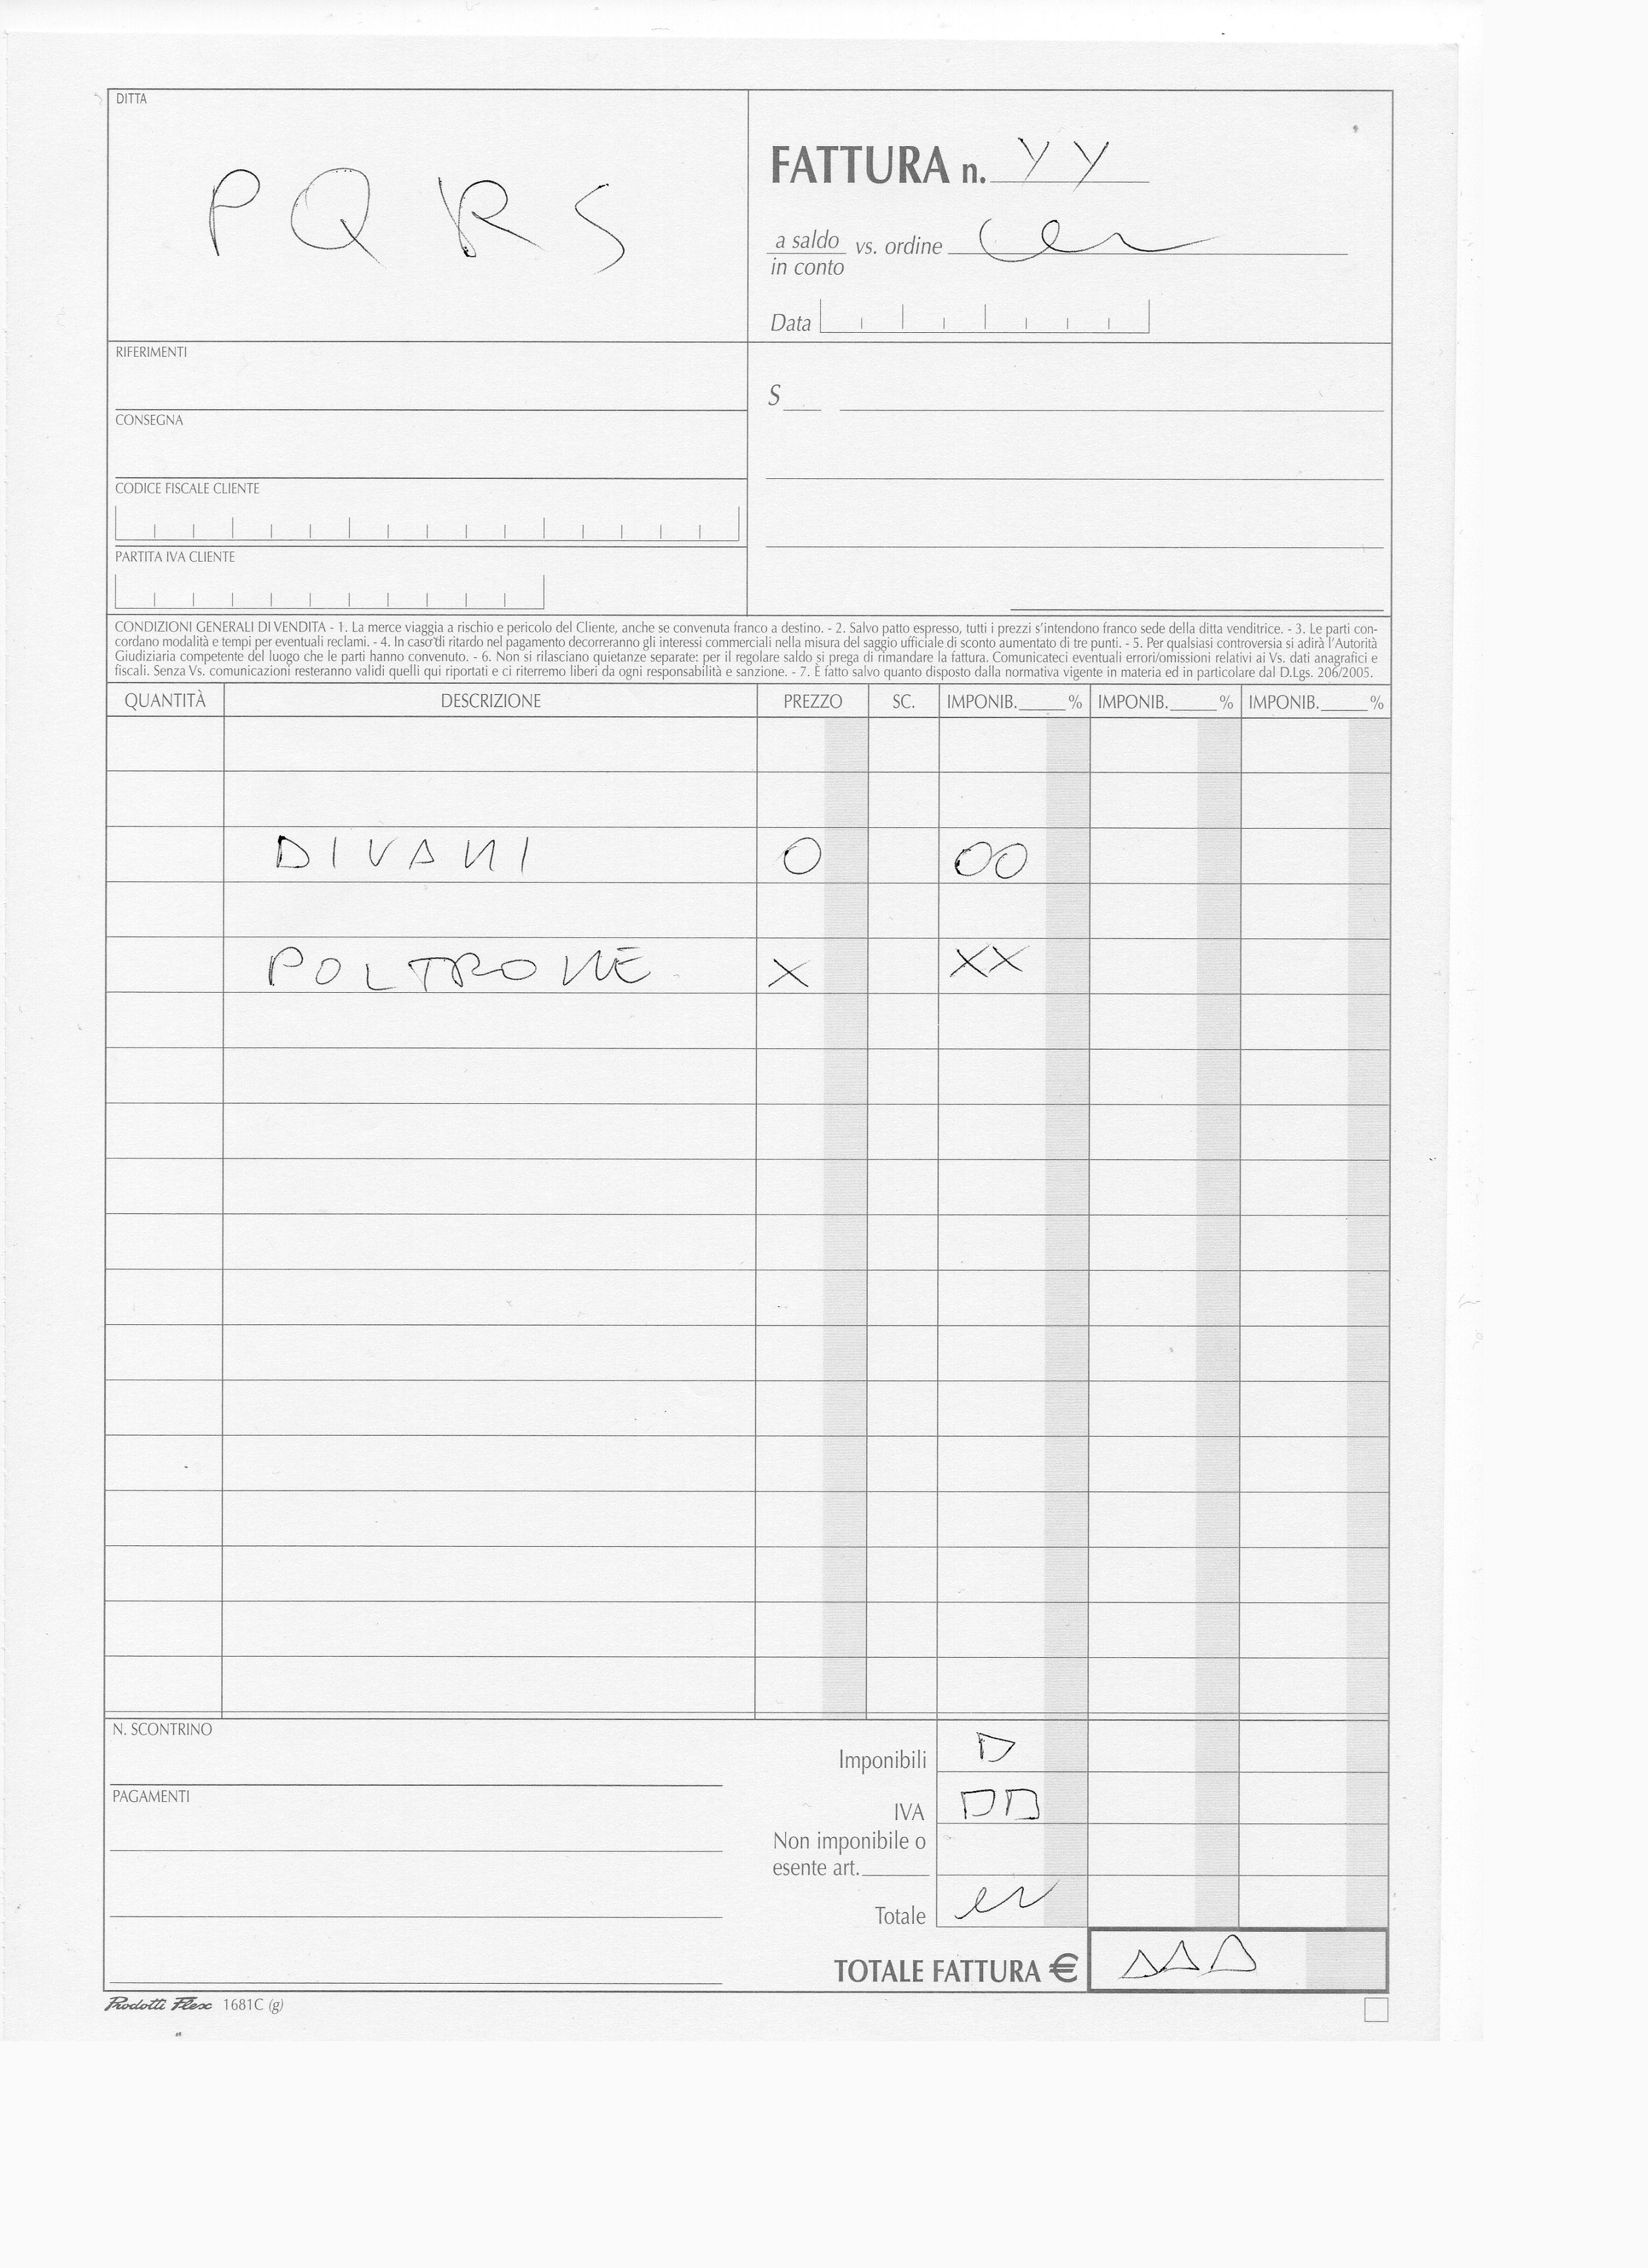 DITTA
P Q R S
FATTURA n. YY
a saldo vs. ordine
in conto
Data
RIFERIMENTI
S
CONSEGNA
CODICE FISCALE CLIENTE
PARTITA IVA CLIENTE
CONDIZIONI GENERALI DI VENDITA - 1. La merce viaggia a rischio e pericolo del Cliente, anche se convenuta franco a destino. - 2. Salvo patto espresso, tutti i prezzi s'intendono franco sede della ditta venditrice. - 3. Le parti con-
cordano modalità e tempi per eventuali reclami. - 4. In caso di ritardo nel pagamento decorreranno gli interessi commerciali nella misura del saggio ufficiale di sconto aumentato di tre punti. - 5. Per qualsiasi controversia si adirà l'Autorità
Giudiziaria competente del luogo che le parti hanno convenuto. - 6. Non si rilasciano quietanze separate: per il regolare saldo si prega di rimandare la fattura. Comunicateci eventuali errori/omissioni relativi ai Vs. dati anagrafici e
fiscali. Senza Vs. comunicazioni resteranno validi quelli qui riportati e ci riterremo liberi da ogni responsabilità e sanzione. - 7. È fatto salvo quanto disposto dalla normativa vigente in materia ed in particolare dal D.Lgs. 206/2005.
QUANTITÀ DESCRIZIONE PREZZO SC. IMPONIB. % IMPONIB. % IMPONIB. %
DIVANI O OO
POLTRONE X XX
N. SCONTRINO
Imponibili D
PAGAMENTI
IVA DD
Non imponibile o
esente art.
Totale
TOTALE FATTURA €
Prodotti Flex 1681C (g)